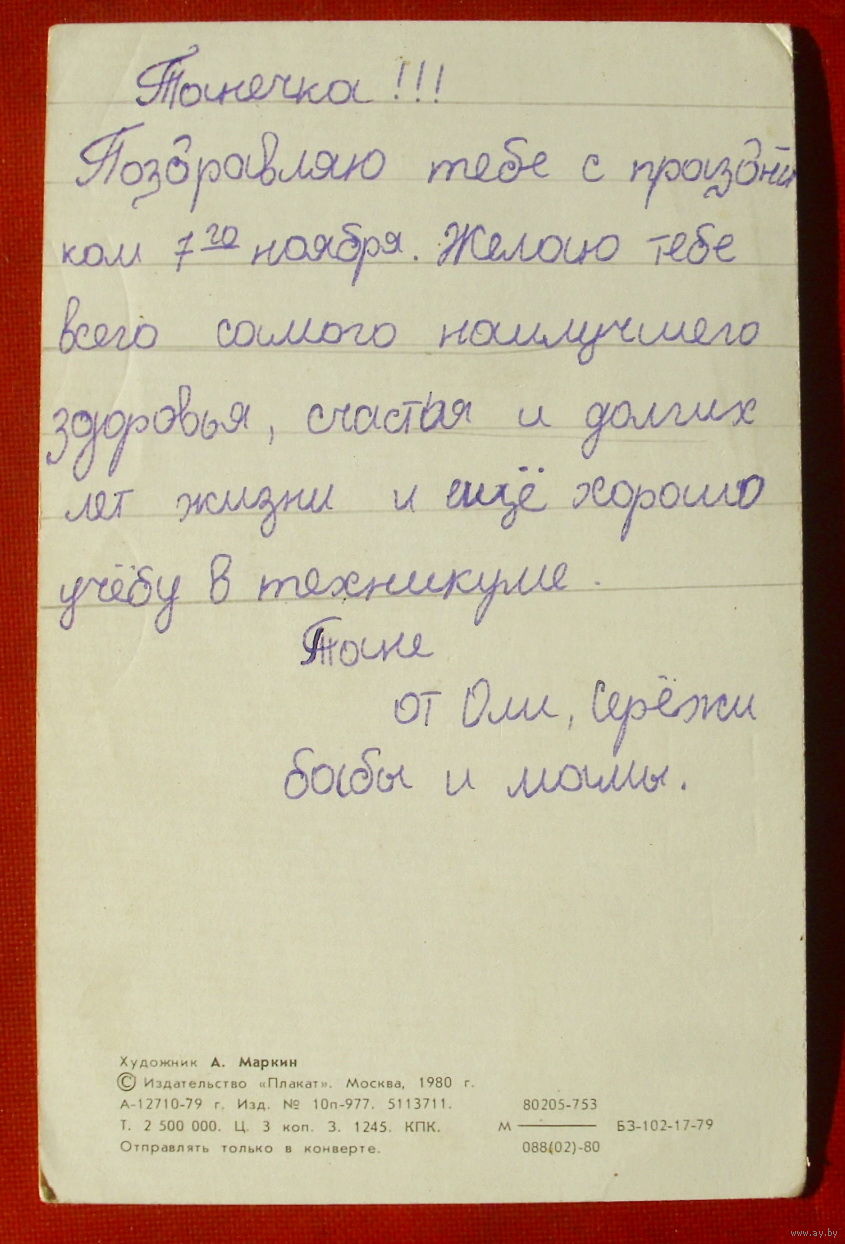 Танечка!!!
Поздравляю тебе с праздни
ком 7го ноября. Желаю тебе
всего самого наилучшего
здоровья, счастья и долгих
лет жизни и ещё хорошо
учёбу в техникуме.
Тане
от Оли, Серёжи
бабы и мамы.
Художник А. Маркин
© Издательство «Плакат». Москва, 1980 г.
А-12710-79 г. Изд. № 10п-977. 5113711.
Т. 2 500 000. Ц. 3 коп. З. 1245. КПК.
Отправлять только в конверте.
80205-753
М ——— БЗ-102-17-79
088(02)-80
www.ay.by